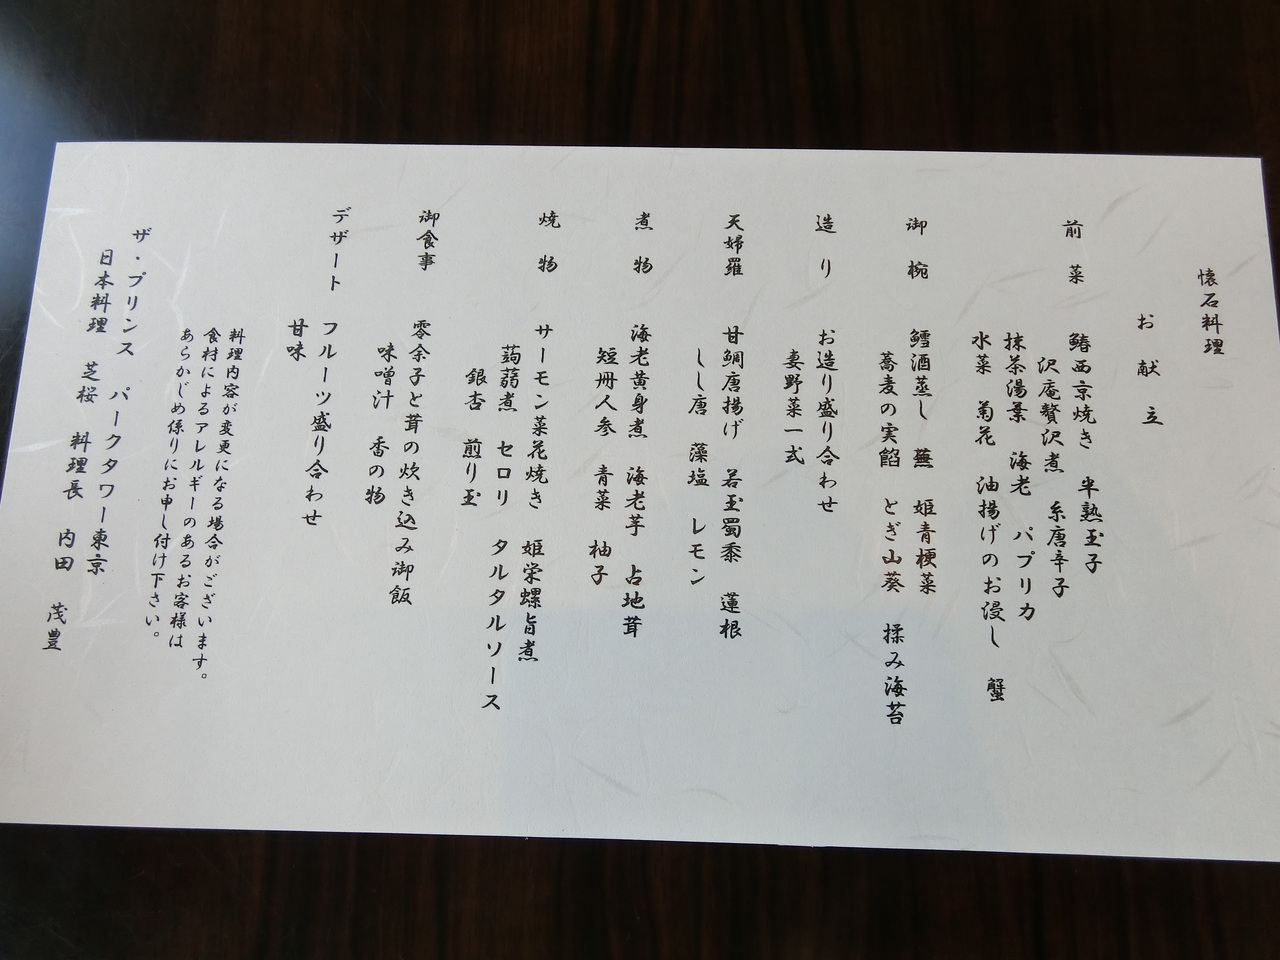 懐石料理
お献立
前菜　鰆西京焼き　半熟玉子
沢庵贅沢煮　糸唐辛子
抹茶湯葉　海老　パプリカ
水菜　菊花　油揚げのお浸し　蟹
御椀　鱈酒蒸し　蕪　姫青梗菜
蕎麦の実餡　とぎ山葵　揉み海苔
造り　お造り盛り合わせ
妻野菜一式
天婦羅　甘鯛唐揚げ　若玉蜀黍　蓮根
しし唐　藻塩　レモン
煮物　海老黄身煮　海老芋　占地茸
短冊人参　青菜　柚子
焼物　サーモン菜花焼き　姫栄螺旨煮
蒟蒻煮　セロリ　タルタルソース
銀杏　煎り玉
御食事　零余子と茸の炊き込み御飯
味噌汁　香の物
デザート　フルーツ盛り合わせ
甘味
料理内容が変更になる場合がございます。
食材によるアレルギーのあるお客様は
あらかじめ係りにお申し付け下さい。
ザ・プリンス　パークタワー東京
日本料理　芝桜　料理長　内田　茂豊